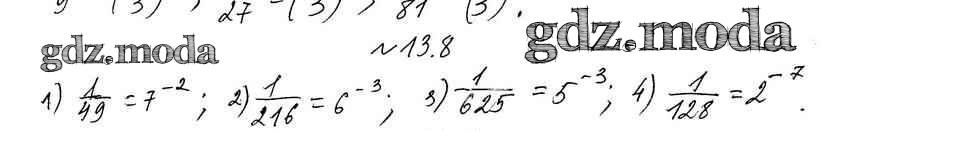 9 (3) ; 27 = (3) ; 81 (3) .
gdz.moda №13.8 gdz.moda
1) 1/49 = 7^-2 ; 2) 1/216 = 6^-3 ; 3) 1/625 = 5^-3 ; 4) 1/128 = 2^-7 .